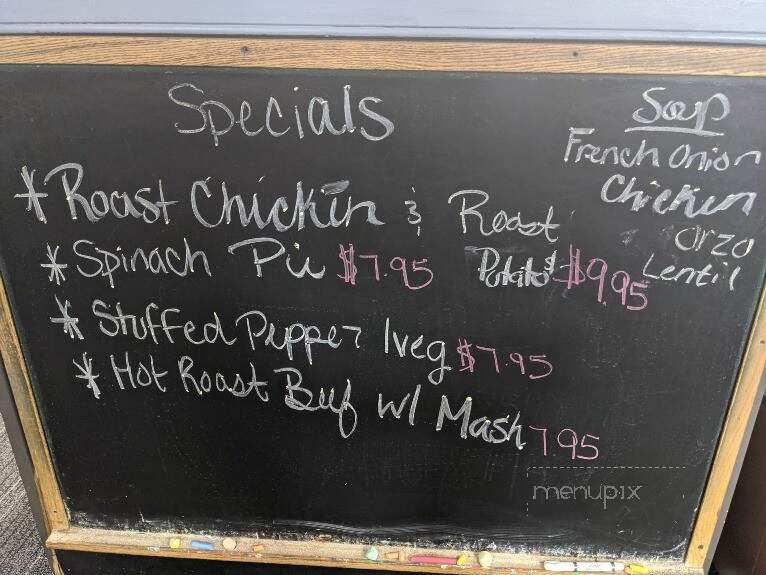 Specials
* Roast Chicken & Roast
Potatos $9.95
* Spinach Pie $7.95
* Stuffed Pepper 1veg $7.95
* Hot Roast Beef w/ Mash 7.95
Soup
French Onion
Chicken
Orzo
Lentil
menupix